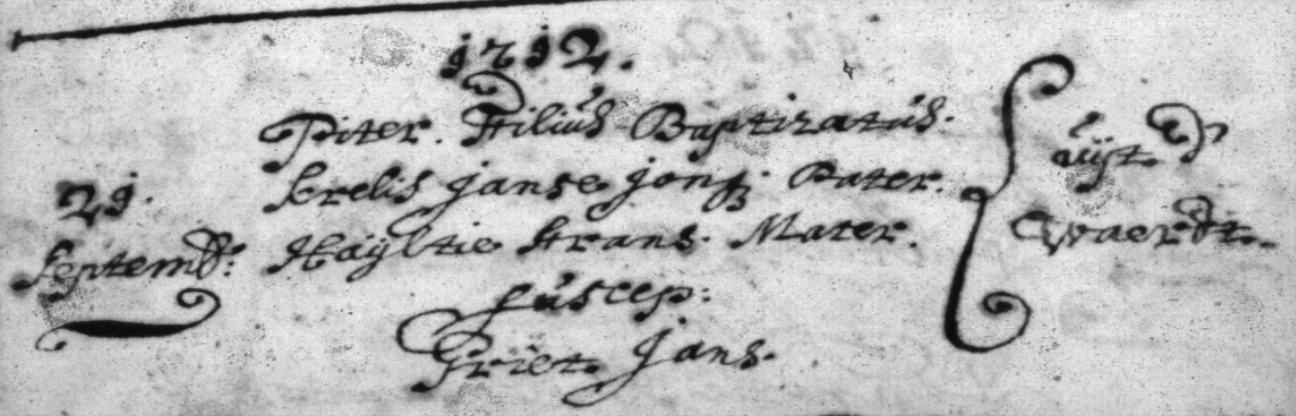 1712.
Piter. Filius Baptizatus.
21. Krelis Janse Jong. Pater.
Septemb: Haÿltie Krans. Mater.
Suscep:
Griet Jans.
uÿt d
Waerdt.